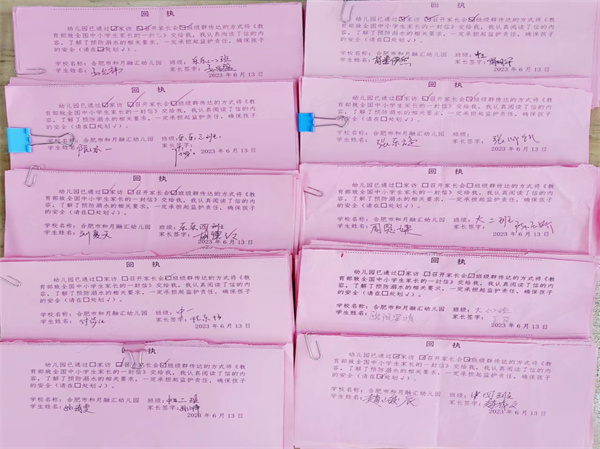 回　执
幼儿园已通过☑家访　☑召开家长会☑班级群传达的方式将《教
育部致全国中小学生家长的一封信》交给我，我认真阅读了信的内
容，了解了预防溺水的相关要求，一定承担起监护责任，确保孩子
的安全（请在□处划√）。
学校名称：合肥市和月融汇幼儿园　班级：
学生姓名：　家长签字：
2023年6月13日
回　执
幼儿园已通过□家访　☑召开家长会☑班级群传达的方式将《教
育部致全国中小学生家长的一封信》交给我，我认真阅读了信的内
容，了解了预防溺水的相关要求，一定承担起监护责任，确保孩子
的安全（请在□处划√）。
学校名称：合肥市和月融汇幼儿园　班级：
学生姓名：　家长签字：
2023年6月13日
回　执
幼儿园已通过□家访　☑召开家长会☑班级群传达的方式将《教
育部致全国中小学生家长的一封信》交给我，我认真阅读了信的内
容，了解了预防溺水的相关要求，一定承担起监护责任，确保孩子
的安全（请在□处划√）。
学校名称：合肥市和月融汇幼儿园　班级：
学生姓名：　家长签字：
2023年6月13日
回　执
幼儿园已通过□家访　□召开家长会☑班级群传达的方式将《教
育部致全国中小学生家长的一封信》交给我，我认真阅读了信的内
容，了解了预防溺水的相关要求，一定承担起监护责任，确保孩子
的安全（请在□处划√）。
学校名称：合肥市和月融汇幼儿园　班级：中一
学生姓名：　家长签字：
2023年6月13日
回　执
幼儿园已通过□家访　☑召开家长会☑班级群传达的方式将《教
育部致全国中小学生家长的一封信》交给我，我认真阅读了信的内
容，了解了预防溺水的相关要求，一定承担起监护责任，确保孩子
的安全（请在□处划√）。
学校名称：合肥市和月融汇幼儿园　班级：
学生姓名：　家长签字：
2023年6月13日
回　执
幼儿园已通过☑家访　☑召开家长会☑班级群传达的方式将《教
育部致全国中小学生家长的一封信》交给我，我认真阅读了信的内
容，了解了预防溺水的相关要求，一定承担起监护责任，确保孩子
的安全（请在□处划√）。
学校名称：合肥市和月融汇幼儿园　班级：
学生姓名：　家长签字：
2023年6月13日
回　执
幼儿园已通过□家访　□召开家长会☑班级群传达的方式将《教
育部致全国中小学生家长的一封信》交给我，我认真阅读了信的内
容，了解了预防溺水的相关要求，一定承担起监护责任，确保孩子
的安全（请在□处划√）。
学校名称：合肥市和月融汇幼儿园　班级：
学生姓名：　家长签字：
2023年6月13日
回　执
幼儿园已通过☑家访　☑召开家长会☑班级群传达的方式将《教
育部致全国中小学生家长的一封信》交给我，我认真阅读了信的内
容，了解了预防溺水的相关要求，一定承担起监护责任，确保孩子
的安全（请在□处划√）。
学校名称：合肥市和月融汇幼儿园　班级：大二班
学生姓名：　家长签字：
2023年6月13日
回　执
幼儿园已通过□家访　□召开家长会☑班级群传达的方式将《教
育部致全国中小学生家长的一封信》交给我，我认真阅读了信的内
容，了解了预防溺水的相关要求，一定承担起监护责任，确保孩子
的安全（请在□处划√）。
学校名称：合肥市和月融汇幼儿园　班级：
学生姓名：　家长签字：
2023年6月13日
回　执
幼儿园已通过□家访　□召开家长会☑班级群传达的方式将《教
育部致全国中小学生家长的一封信》交给我，我认真阅读了信的内
容，了解了预防溺水的相关要求，一定承担起监护责任，确保孩子
的安全（请在□处划√）。
学校名称：合肥市和月融汇幼儿园　班级：中四班
学生姓名：　家长签字：
2023年6月13日